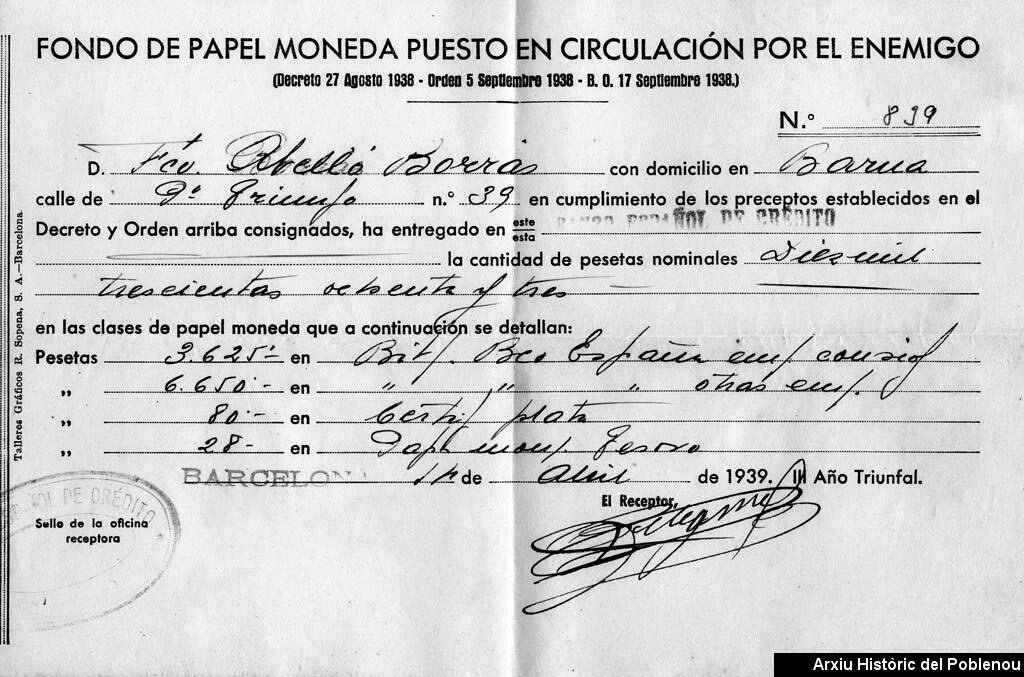 FONDO DE PAPEL MONEDA PUESTO EN CIRCULACIÓN POR EL ENEMIGO
(Decreto 27 Agosto 1938 - Orden 5 Septiembre 1938 - B. O. 17 Septiembre 1938.)
N.º 839
D. Fco. Abelló Borrás con domicilio en Barna
calle de Pº Triunfo n.º 39 en cumplimiento de los preceptos establecidos en el
Decreto y Orden arriba consignados, ha entregado en este/esta BANCO ESPAÑOL DE CRÉDITO
la cantidad de pesetas nominales Diez mil
trescientas ochenta y tres
en las clases de papel moneda que a continuación se detallan:
Pesetas 3.625.- en Bit/. Bco España em/. consig/
„ 6.650.- en „ „ „ otras em/.
„ 80.- en Certif plata
„ 28.- en Pap. mon/. Tesoro
BARCELONA 14 de Abril de 1939. III Año Triunfal.
El Receptor,
ÑOL DE CRÉDITO
Sello de la oficina
receptora
Talleres Gráficos R. Sopena, S. A.—Barcelona
Arxiu Històric del Poblenou